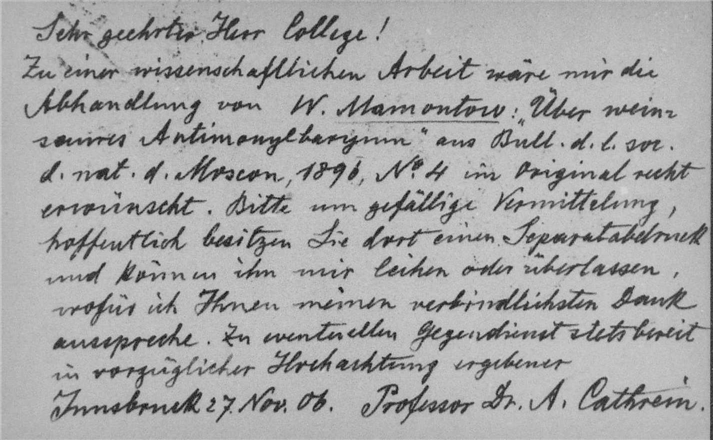 Sehr geehrter Herr College!
Zu einer wissenschaftlichen Arbeit wäre mir die
Abhandlung von W. Mamontow: „Über wein=
saures Antimonylbaryum" aus Bull. d. l. soc.
d. nat. d. Moscou, 1896, No 4 im Original recht
erwünscht. Bitte um gefällige Vermittelung,
hoffentlich besitzen Sie dort einen Separatabdruck
und können ihn mir leihen oder überlassen,
wofür ich Ihnen meinen verbindlichsten Dank
ausspreche. Zu eventuellen Gegendienst stets bereit
in vorzüglicher Hochachtung ergebener
Innsbruck 27. Nov. 06. Professor Dr. A. Cathrein.